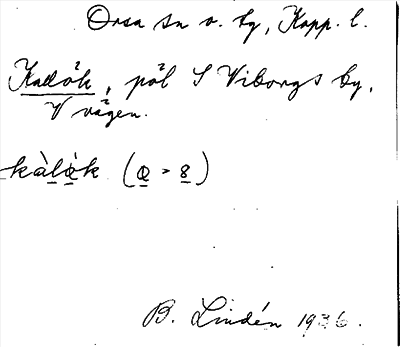 Orsa sn o. by, Kopp. l.
Kallåk, pål S Viborgs by,
V vägen.
kàlàk ( o > 8 )
B. Lindén 1936.